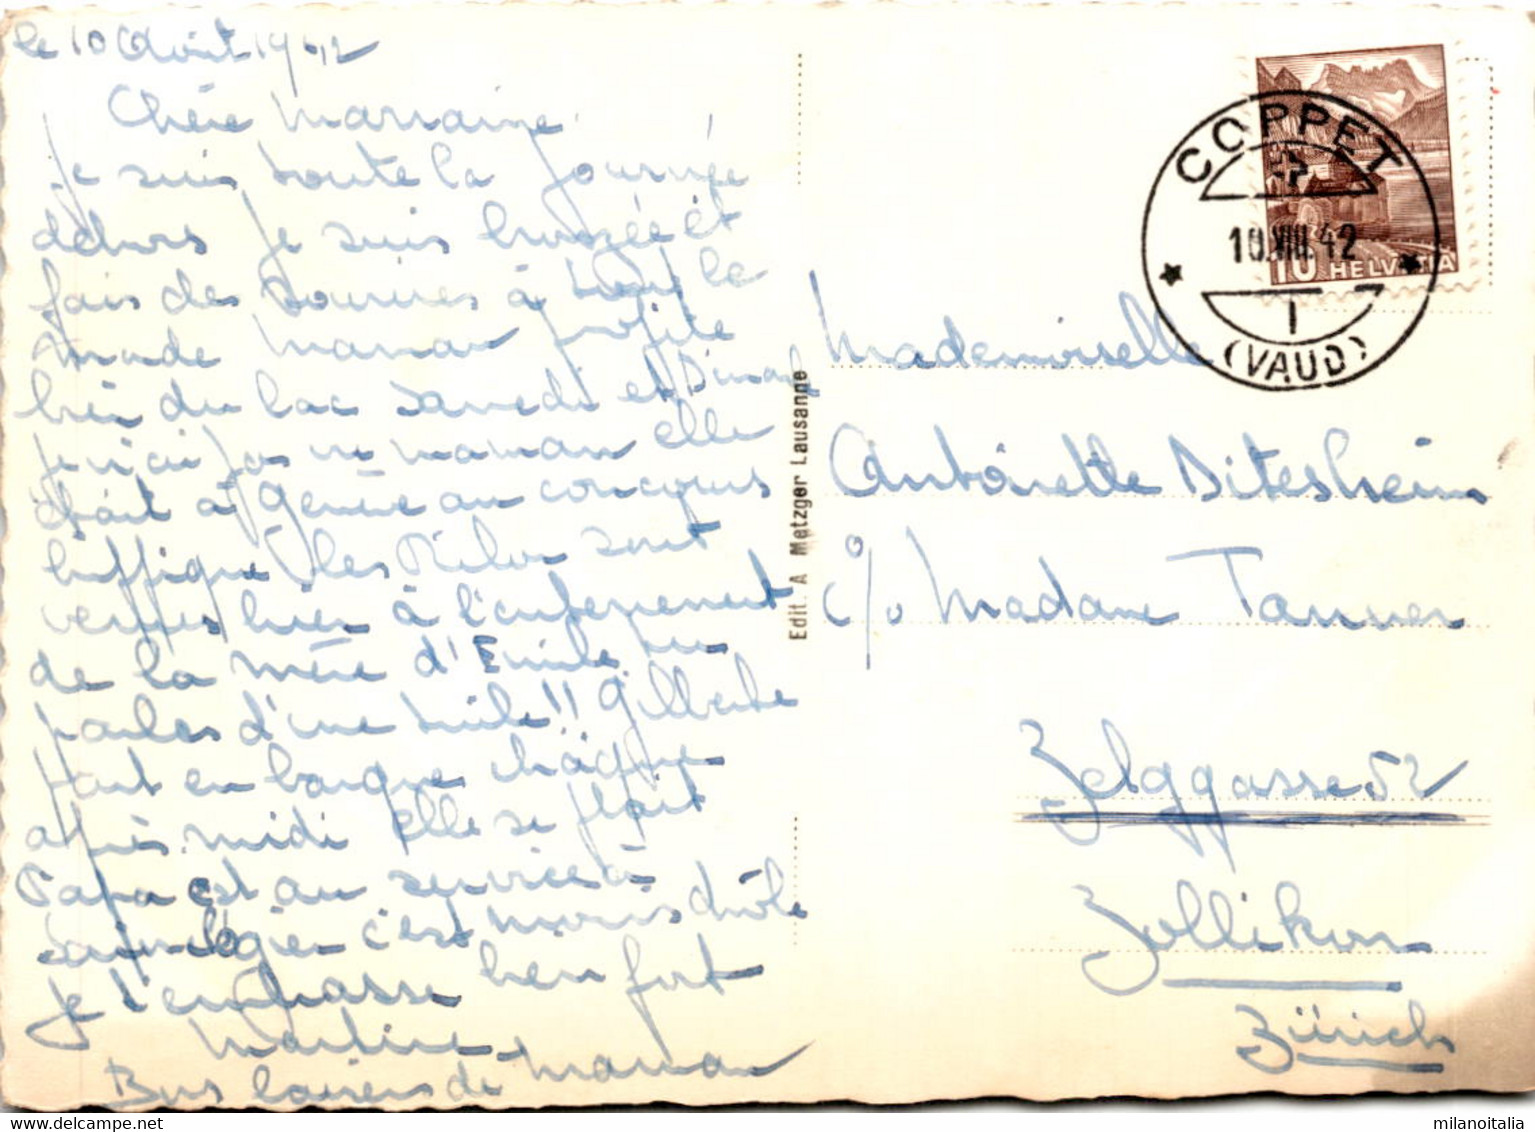 le 10 Août 1942
Chère Marraine
Je suis toute la journée
dehors je suis bronzée et
fais des sourires à tout le
monde Maman profite
bien du lac samedi et Dimanche
je n'ai pas vu maman elle
était à Genève au concours
hippique les Pilou sont
venues hier à l'enterrement
de la mère d'Emile tu
parles d'une tuile!! Gilberte
part en barque chaque
après midi elle se plait
Papa est au service à
Saint-Légier c'est moins drôle
je t'embrasse bien fort
Martine
Bons baisers de Maman
Edit. A Metzger Lausanne
COPPET
10.VIII.42
(VAUD)
10 HELVETIA
Mademoiselle
Antoinette Ditesheim
c/o Madame Tanner
Zelggasse 52
Zollikon
Zürich
milanoitalia